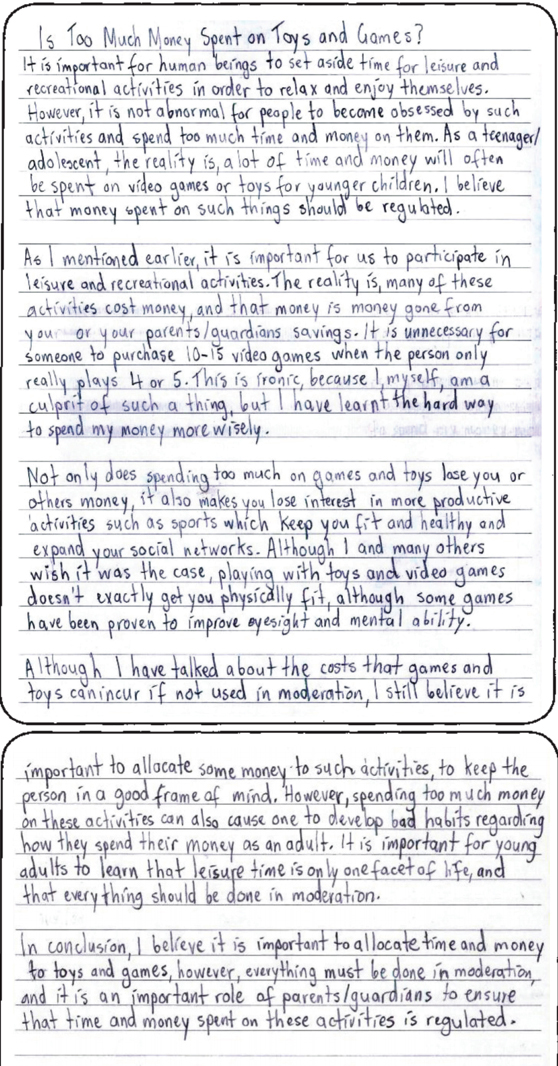 Is Too Much Money Spent on Toys and Games?
It is important for human beings to set aside time for leisure and
recreational activities in order to relax and enjoy themselves.
However, it is not abnormal for people to become obsessed by such
activities and spend too much time and money on them. As a teenager/
adolescent, the reality is, a lot of time and money will often
be spent on video games or toys for younger children. I believe
that money spent on such things should be regulated.
As I mentioned earlier, it is important for us to participate in
leisure and recreational activities. The reality is, many of these
activities cost money, and that money is money gone from
your or your parents/guardians savings. It is unnecessary for
someone to purchase 10-15 video games when the person only
really plays 4 or 5. This is ironic, because I, myself, am a
culprit of such a thing, but I have learnt the hard way
to spend my money more wisely.
Not only does spending too much on games and toys lose you or
others money, it also makes you lose interest in more productive
activities such as sports which keep you fit and healthy and
expand your social networks. Although I and many others
wish it was the case, playing with toys and video games
doesn't exactly get you physically fit, although some games
have been proven to improve eyesight and mental ability.
Although I have talked about the costs that games and
toys can incur if not used in moderation, I still believe it is
important to allocate some money to such activities, to keep the
person in a good frame of mind. However, spending too much money
on these activities can also cause one to develop bad habits regarding
how they spend their money as an adult. It is important for young
adults to learn that leisure time is only one facet of life, and
that everything should be done in moderation.
In conclusion, I believe it is important to allocate time and money
to toys and games, however, everything must be done in moderation,
and it is an important role of parents/guardians to ensure
that time and money spent on these activities is regulated.